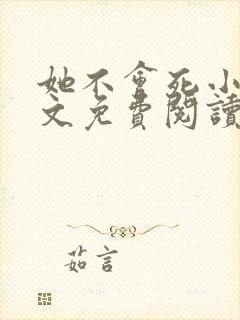 她不會死小
文免費閱讀
茹言